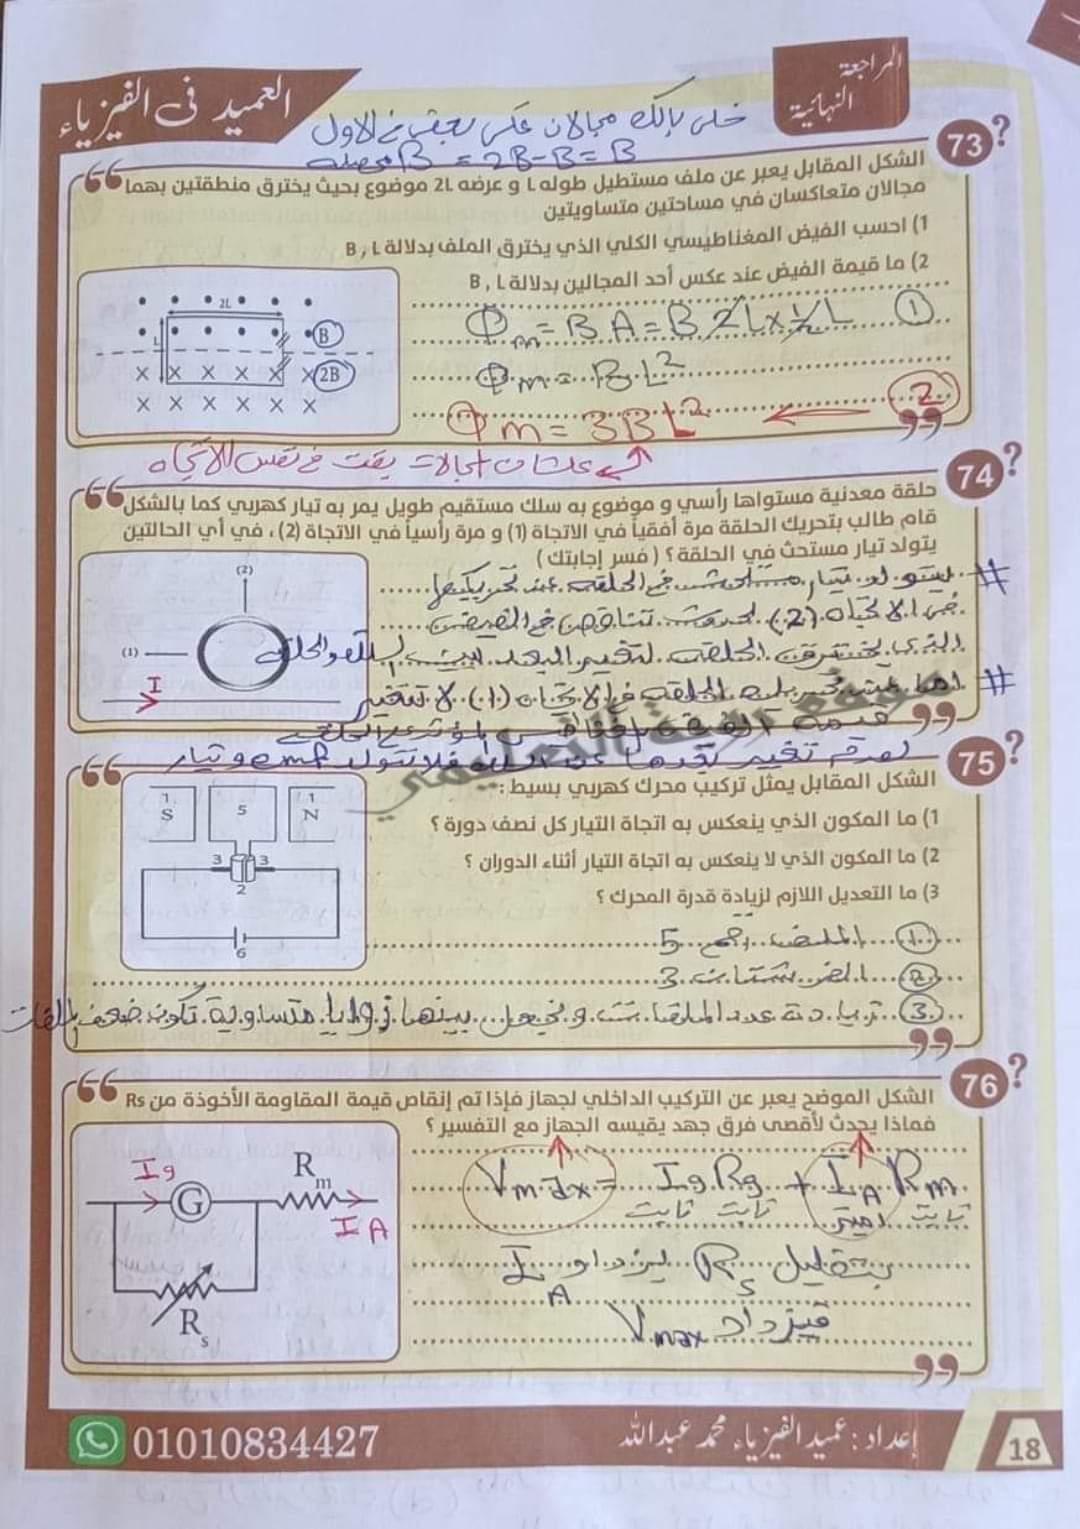 المراجعة
النهائية
العميد فى الفيزياء
خلى بالك مجالان عكس بعض فى الاول
B محصلة = 2B-B = B
73
الشكل المقابل يعبر عن ملف مستطيل طوله L و عرضه 2L موضوع بحيث يخترق منطقتين بهما
مجالان متعاكسان في مساحتين متساويتين
1) احسب الفيض المغناطيسي الكلي الذي يخترق الملف بدلالة B , L
2) ما قيمة الفيض عند عكس أحد المجالين بدلالة B , L
2L
L
B
2B
① Φm = B A = B 2L × ½ L
Φm = B L²
② Φm = 3BL²
علشان المجالات بقت فى نفس الاتجاه
74
حلقة معدنية مستواها رأسي و موضوع به سلك مستقيم طويل يمر به تيار كهربي كما بالشكل
قام طالب بتحريك الحلقة مرة أفقياً في الاتجاة (1) و مرة رأسياً في الاتجاة (2) ، في أي الحالتين
يتولد تيار مستحث في الحلقة ؟ ( فسر إجابتك )
(2)
(1)
I
# يتولد تيار مستحث فى الحلقة عند تحريكها
فى الاتجاه (2) لحدوث تناقص فى الفيض
الذى يخترق الحلقة لتغير البعد بين السلك والحلقة
# اما عند تحريك الحلقة فى الاتجاه (1) لا تتغير
قيمة الفيض المؤثر على الحلقة
لعدم تغير بعدها عن السلك فلا تتولد emf و تيار
موقع رؤية التعليمي
75
الشكل المقابل يمثل تركيب محرك كهربي بسيط :
1) ما المكون الذي ينعكس به اتجاة التيار كل نصف دورة ؟
2) ما المكون الذي لا ينعكس به اتجاة التيار أثناء الدوران ؟
3) ما التعديل اللازم لزيادة قدرة المحرك ؟
1 S
5
1 N
3 3
2
6
① الملف رقم 5
② الفرشتان 3
③ زيادة عدد الملفات و نجعل بينها زوايا متساوية تكون ضعف الملفات
76
الشكل الموضح يعبر عن التركيب الداخلي لجهاز فإذا تم إنقاص قيمة المقاومة الأخوذة من Rs
فماذا يحدث لأقصى فرق جهد يقيسه الجهاز مع التفسير ؟
Ig
G
Rm
IA
Rs
Vmax = Ig Rg + IA Rm
ثابت ثابت اميتر ثابت
بتقليل Rs يزداد IA
فيزداد Vmax
إعداد : عميد الفيزياء محمد عبدالله
01010834427
18